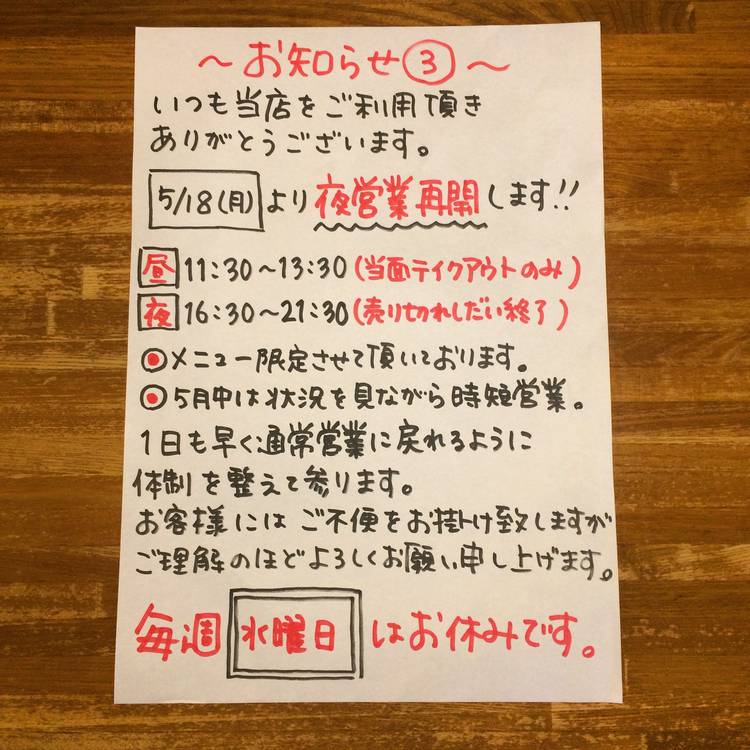 ～お知らせ③～
いつも当店をご利用頂き
ありがとうございます。
5/18(月)より夜営業再開します!!
昼 11:30～13:30(当面テイクアウトのみ)
夜 16:30～21:30(売り切れしだい終了)
◉メニュー限定させて頂いております。
◉5月中は状況を見ながら時短営業。
1日も早く通常営業に戻れるように
体制を整えて参ります。
お客様にはご不便をお掛け致しますが
ご理解のほどよろしくお願い申し上げます。
毎週水曜日はお休みです。